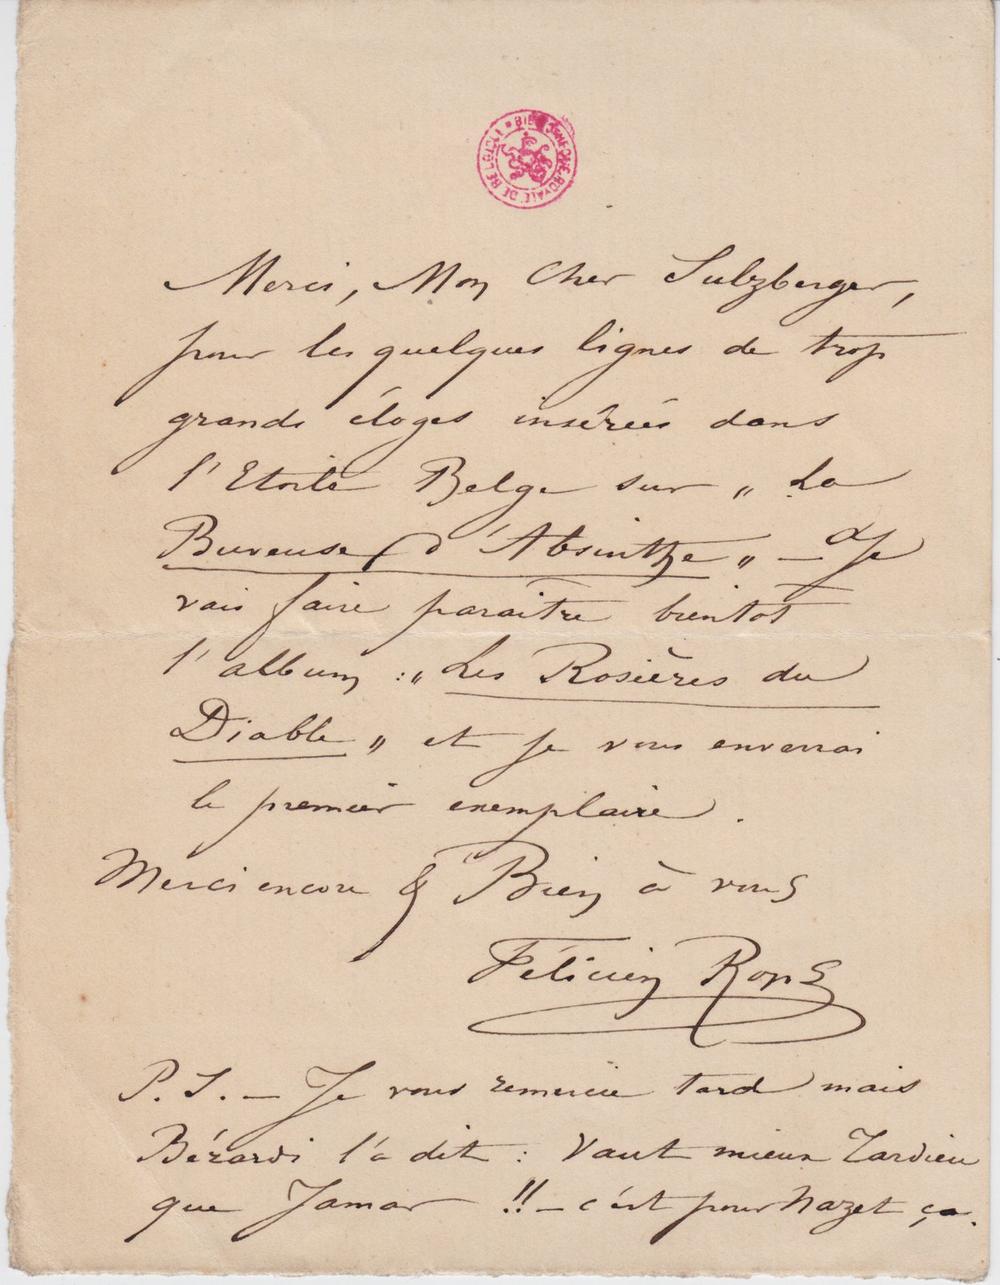 BIBLIOTHÈQUE ROYALE DE BELGIQUE
Merci, Mon Cher Sulzberger,
pour les quelques lignes de trop
grands éloges insérées dans
l'Etoile Belge sur „ La
Buveuse d'Absinthe „ — Je
vais faire paraitre bientot
l'album : „ Les Rosières du
Diable „ et je vous enverrai
le premier exemplaire .
Merci encore & Bien à vous
Félicien Rops
P. S. — Je vous remercie tard mais
Bérardi l'a dit : Vaut mieux Tardieu
que Jamar !! — c'est pour Nazet ça.